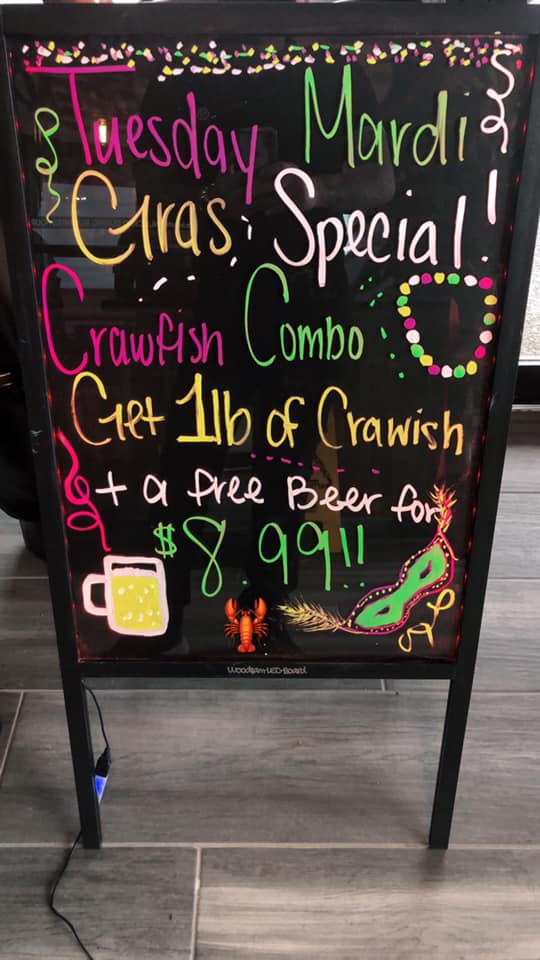 Tuesday Mardi
Gras Special!
Crawfish Combo
Get 1lb of Crawish
+ a free Beer for
$8.99!!